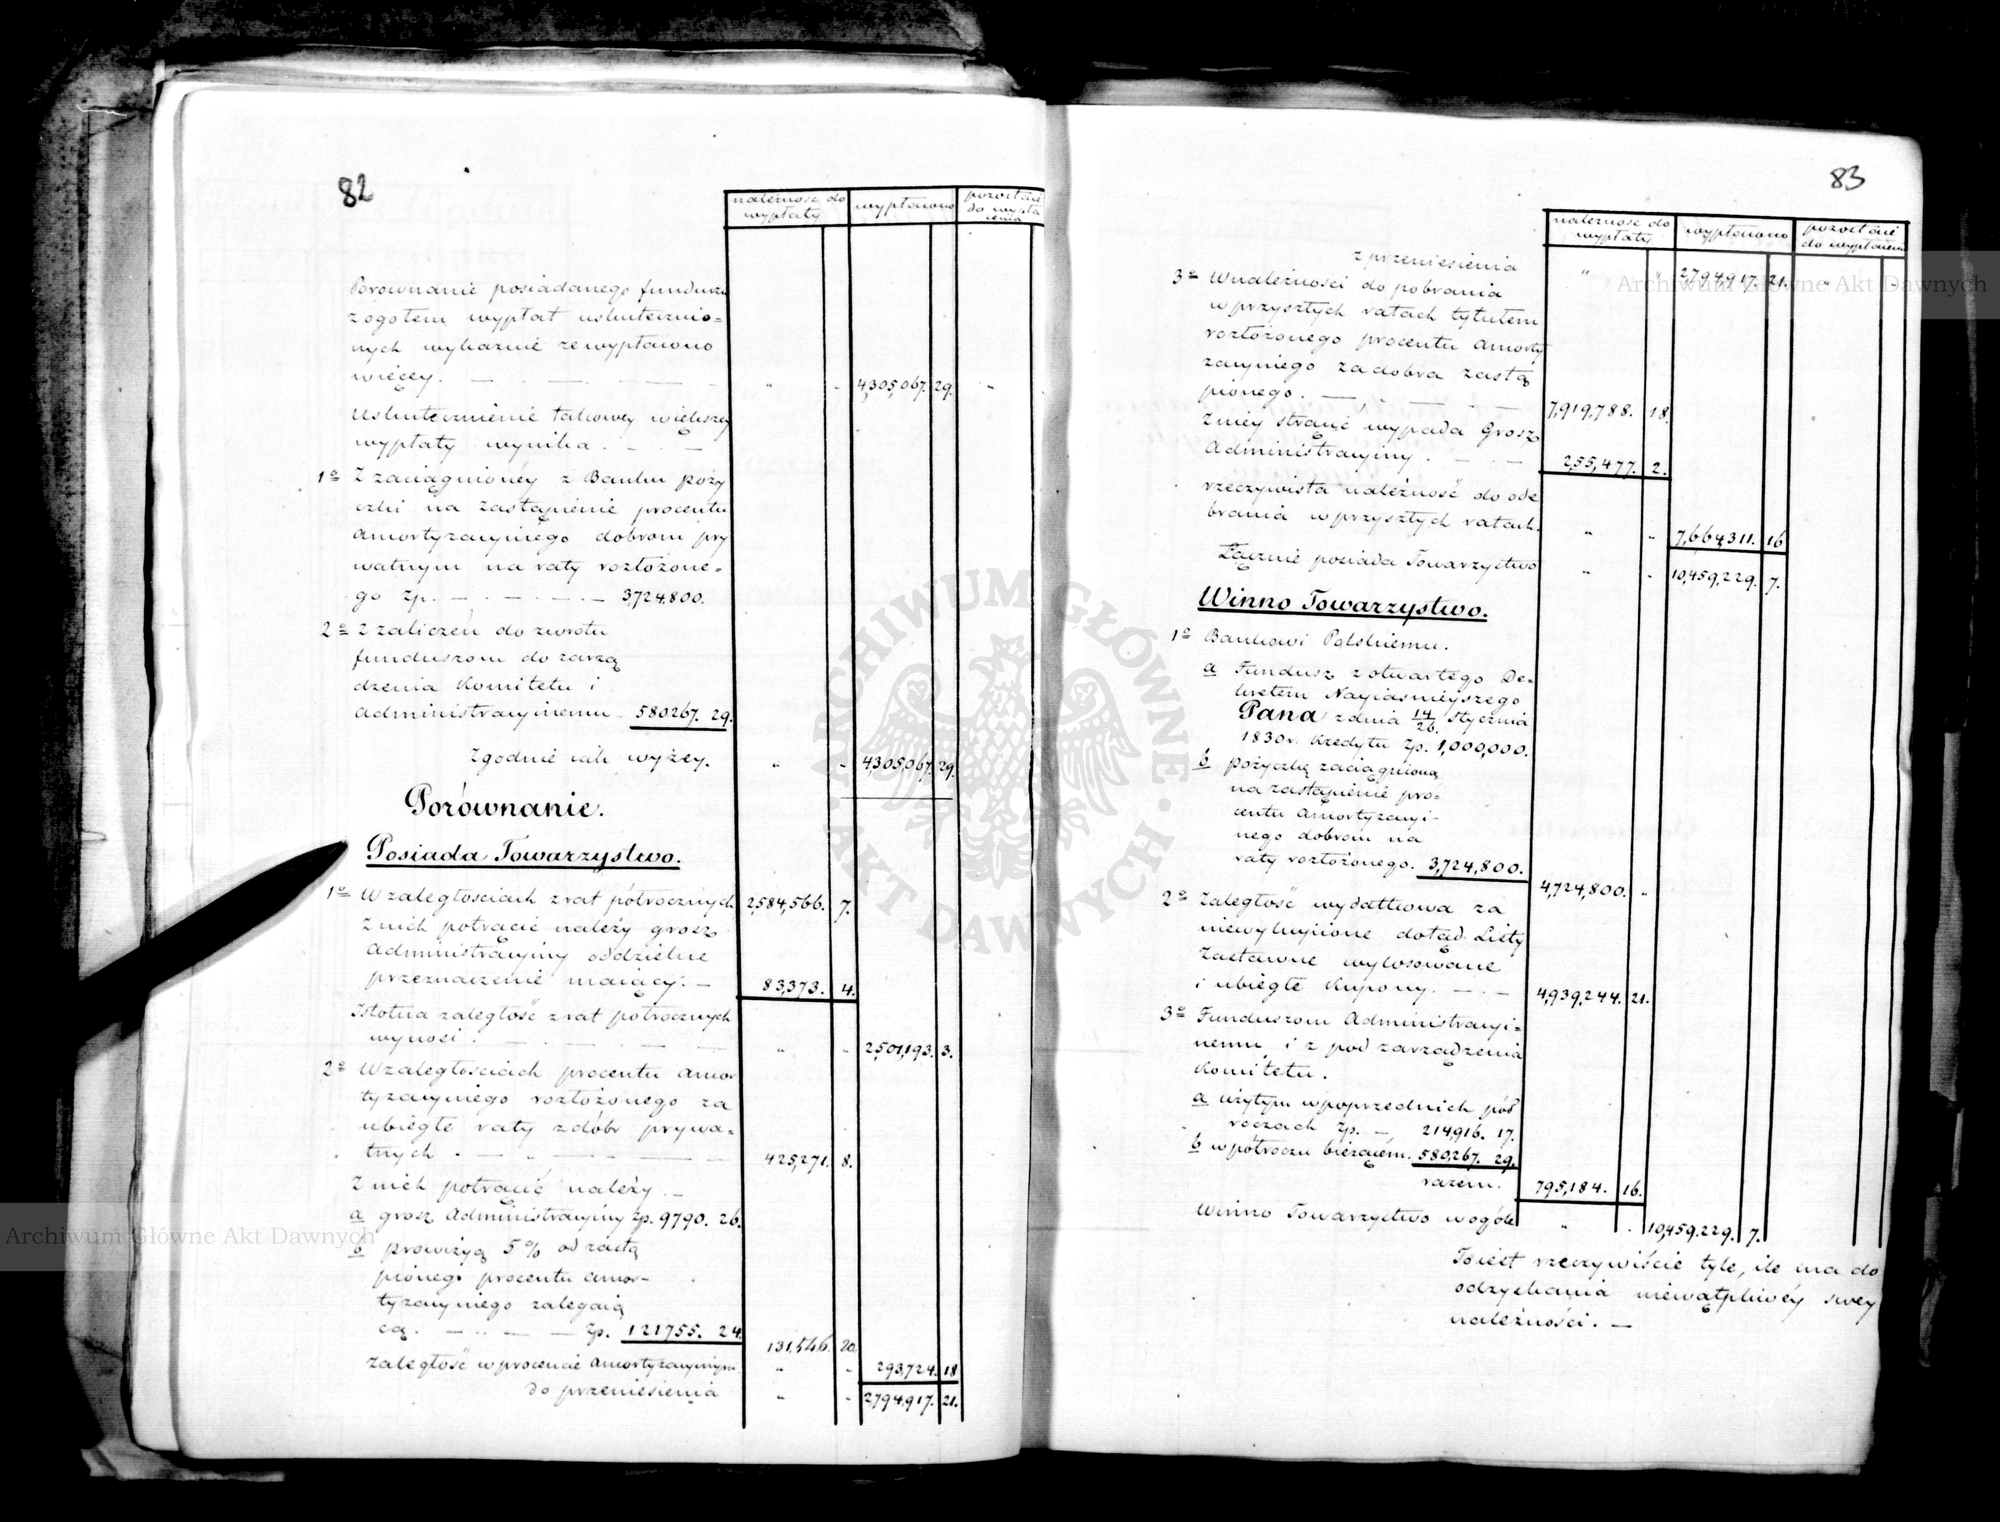 82
należność do wypłaty
wypłacono
pozostaje do wypłacenia
Porownanie posiadanego funduszu
zogołem wypłat uskuteznio-
nych wykaznie zewypłacono
więcey. — . — . — . — " - 4,305,067. 29. "
Uskutecznienie takowey większey
wypłaty wynika. — . —
1o Z zaciągnioney z Banku poży
czki na zastąpienie procentu
amortyzacyinego dobrom pry
watnym na raty rozłożone-
go zp. — . — . — . — 3,724,800.
2o z zaliczeń do zwrotu
funduszom do zarzą
dzenia Komitetu i
administracyinemu 580267. 29.
Zgodnie iak wyżey. " - 4,305,067. 29.
Porównanie.
Posiada Towarzystwo.
1o W zaległościach z rat półrocznych 2,584,566. 7.
Z nich potracić należy grosz
administracyiny oddzielne
przeznaczenie maiący. — 83,373. 4.
Istotna zaległość z rat półrocznych
wynosi . — . — . — " - 2,501,193. 3.
2o W zaległościach procentu amor
tyzacyinego rozłożonego za
ubiegłe raty z dóbr prywa-
tnych . — . — 425,271. 8.
Z nich potrącić należy. —
a grosz Administracyiny zp. 9790. 26.
b prowizyą 5 % od zastą
pionego procentu amor-
tyzacyinego zalegaią
cą. — . . — . — zp. 121755. 24. 131,546. 20
Zaległość w procencie amortyzacyinym " - 293,724. 18
do przeniesienia " - 2,794,917. 21.
83
należność do wypłaty
wypłacono
pozostaie do wypłacenia
z przeniesienia " " 2,794,917. 21. " .
3o W należności do pobrania
w przyszłych ratach tytułem
rozłożonego procentu amorty
zacyinego za dobra zastą
pionego. — . — . — 7,919,788. 18.
Z niey strącić wypada Grosz
Administracyiny. — . — 255,477. 2.
rzeczywista należność do ode
brania w przyszłych ratach. " " 7,664,311. 16
Łącznie posiada Towarzystwo " . 10,459,229. 7.
Winno Towarzystwo.
1o Bankowi Polskiemu.
a Fundusz z otwartego De-
kretem Nayiasnieyszego
Pana z dnia 14/26. Stycznia
1830r. Kredytu zp. 1,000,000.
b pożyczkę zaciągnioną
na zastąpienie pro-
centu Amortyzacyi-
nego dobrom na
raty rozłożonego. 3,724,800. 4,724,800. "
2o Zaległość wydatkowa za
niewykupione dotąd Listy
Zastawne wylosowane
i ubiegłe Kupony. — . — 4,939,244. 21.
3o Funduszom Administracyi-
nemu, i z pod zarządzenia
Komitetu.
a użytym w poprzednich pół
roczach zp. — 214,916. 17.
b w półroczu bieżącem. 580,267. 29.
razem. 795,184. 16.
Winno Towarzystwo wogóle " . 10,459,229. 7.
To iest rzeczywiście tyle, ile ma do
odzyskania niewątpliwéy swey
należności. —
ARCHIWUM GŁÓWNE · AKT DAWNYCH ·
Archiwum Główne Akt Dawnych
Archiwum Główne Akt Dawnych